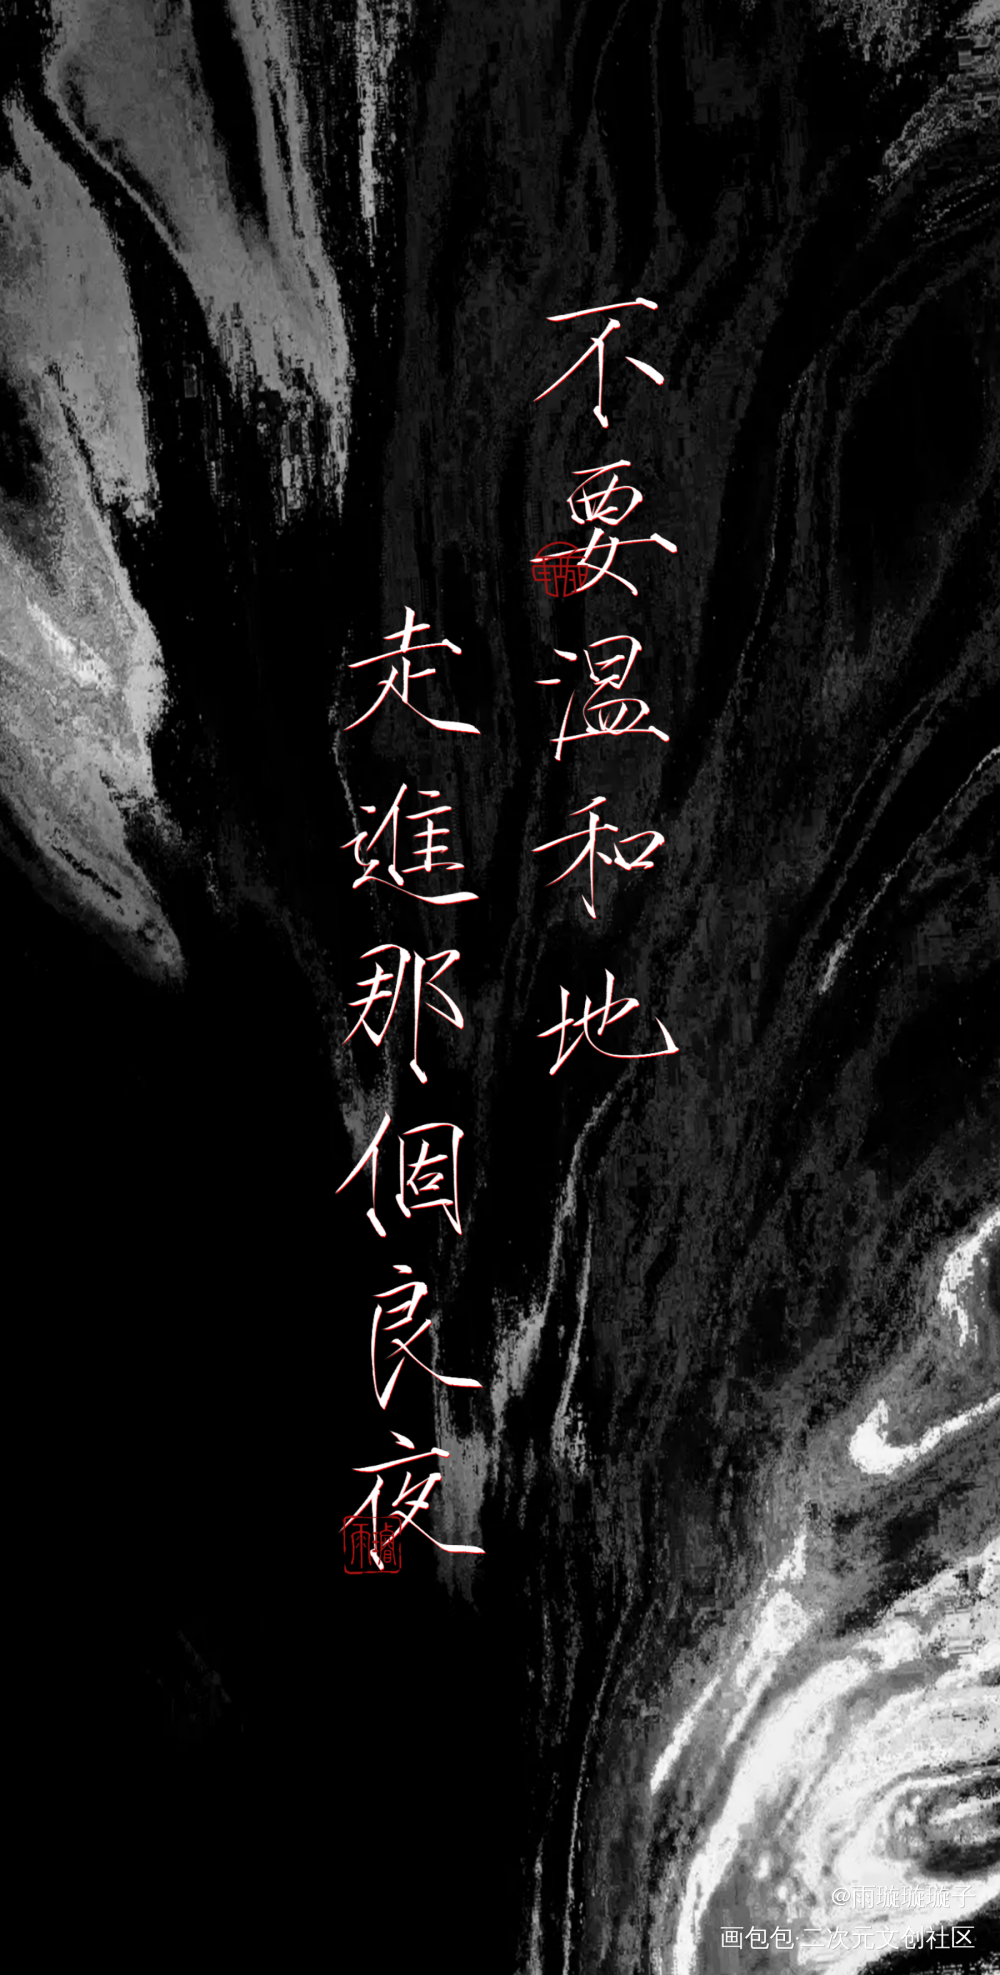 不要温和地
走進那個良夜
@雨璇璇璇子
画包包·二次元文创社区